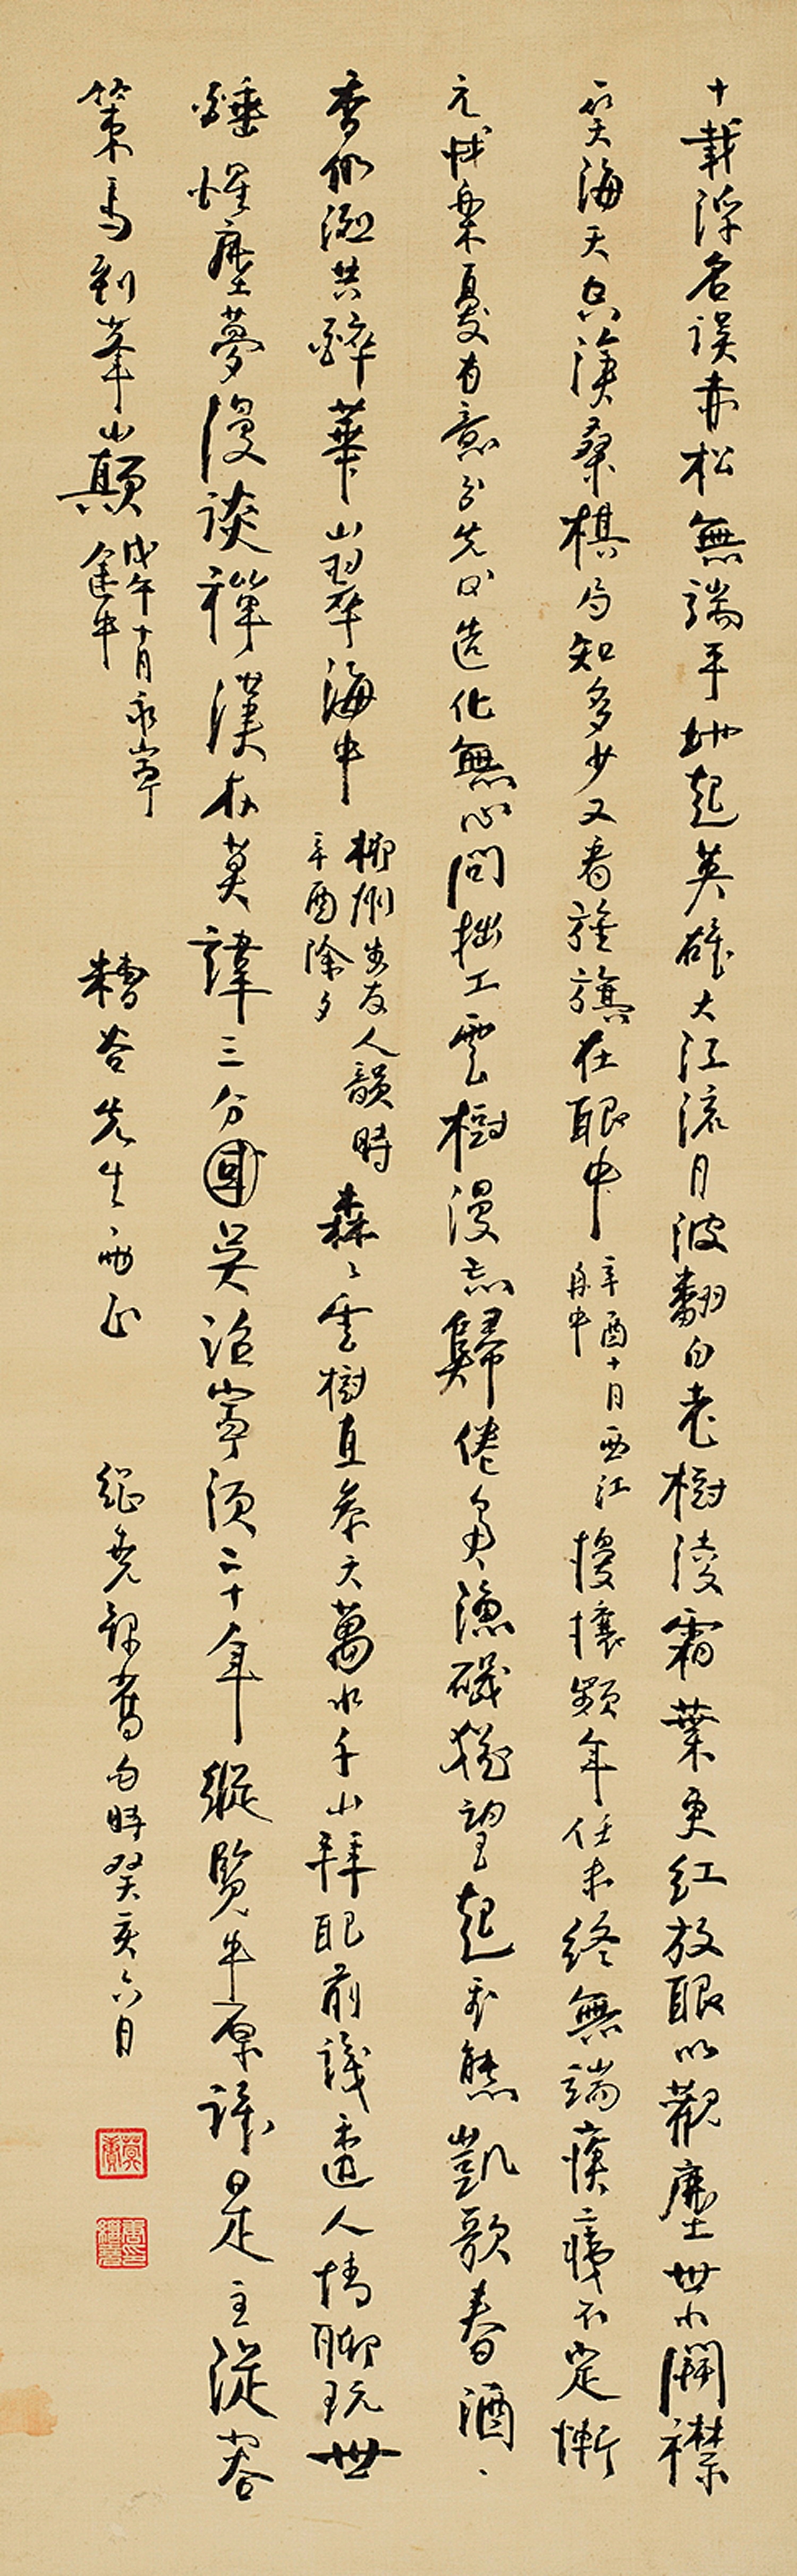 十載浮名誤赤松無端平地起英雄大江流月波翻白老樹凌霜葉更紅放眼以觀塵世小開襟
笑海天空滄桑棋局知多少又看旌旗在眼中
辛酉十月西江
舟中
擾攘頻年任未終無端痍瘼不定慚
元城棄夏有意分先
造化無心問拙工雲樹漫忘歸倦鳥漁磯猶望起飛熊凱歌春酒、
香仍溢共醉華山翠海中
柳州步友人韻時
辛酉除夕
森々雲樹直參天萬水千山拜眼前識透人情聊玩世
鍾惺塵夢漫談禪漢在莫諱三分國吳治寧須二十年縱覽中原誰是主從容
策馬到峯巔
戊午十月永寧
途中
糟谷先生兩正
繼堯錄舊句時癸亥六月